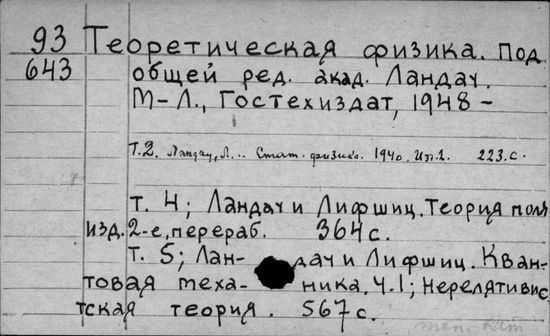 93 Теоретическая физика. Под
643 общей ред. акад. Ландау.
М-Л., Гостехиздат, 1948 –
Т.2. Ландау, Л.. Стат. физика. 1940. Изд. 223.с.
т. 4; Ландау и Лифшиц. Теория поля
изд. 2-е, перераб. 364 с.
т. 5; Лан- дау и Лифшиц. Кван-
товая меха- ника. Ч.1; Нерелятивис
тская теория. 567 с.